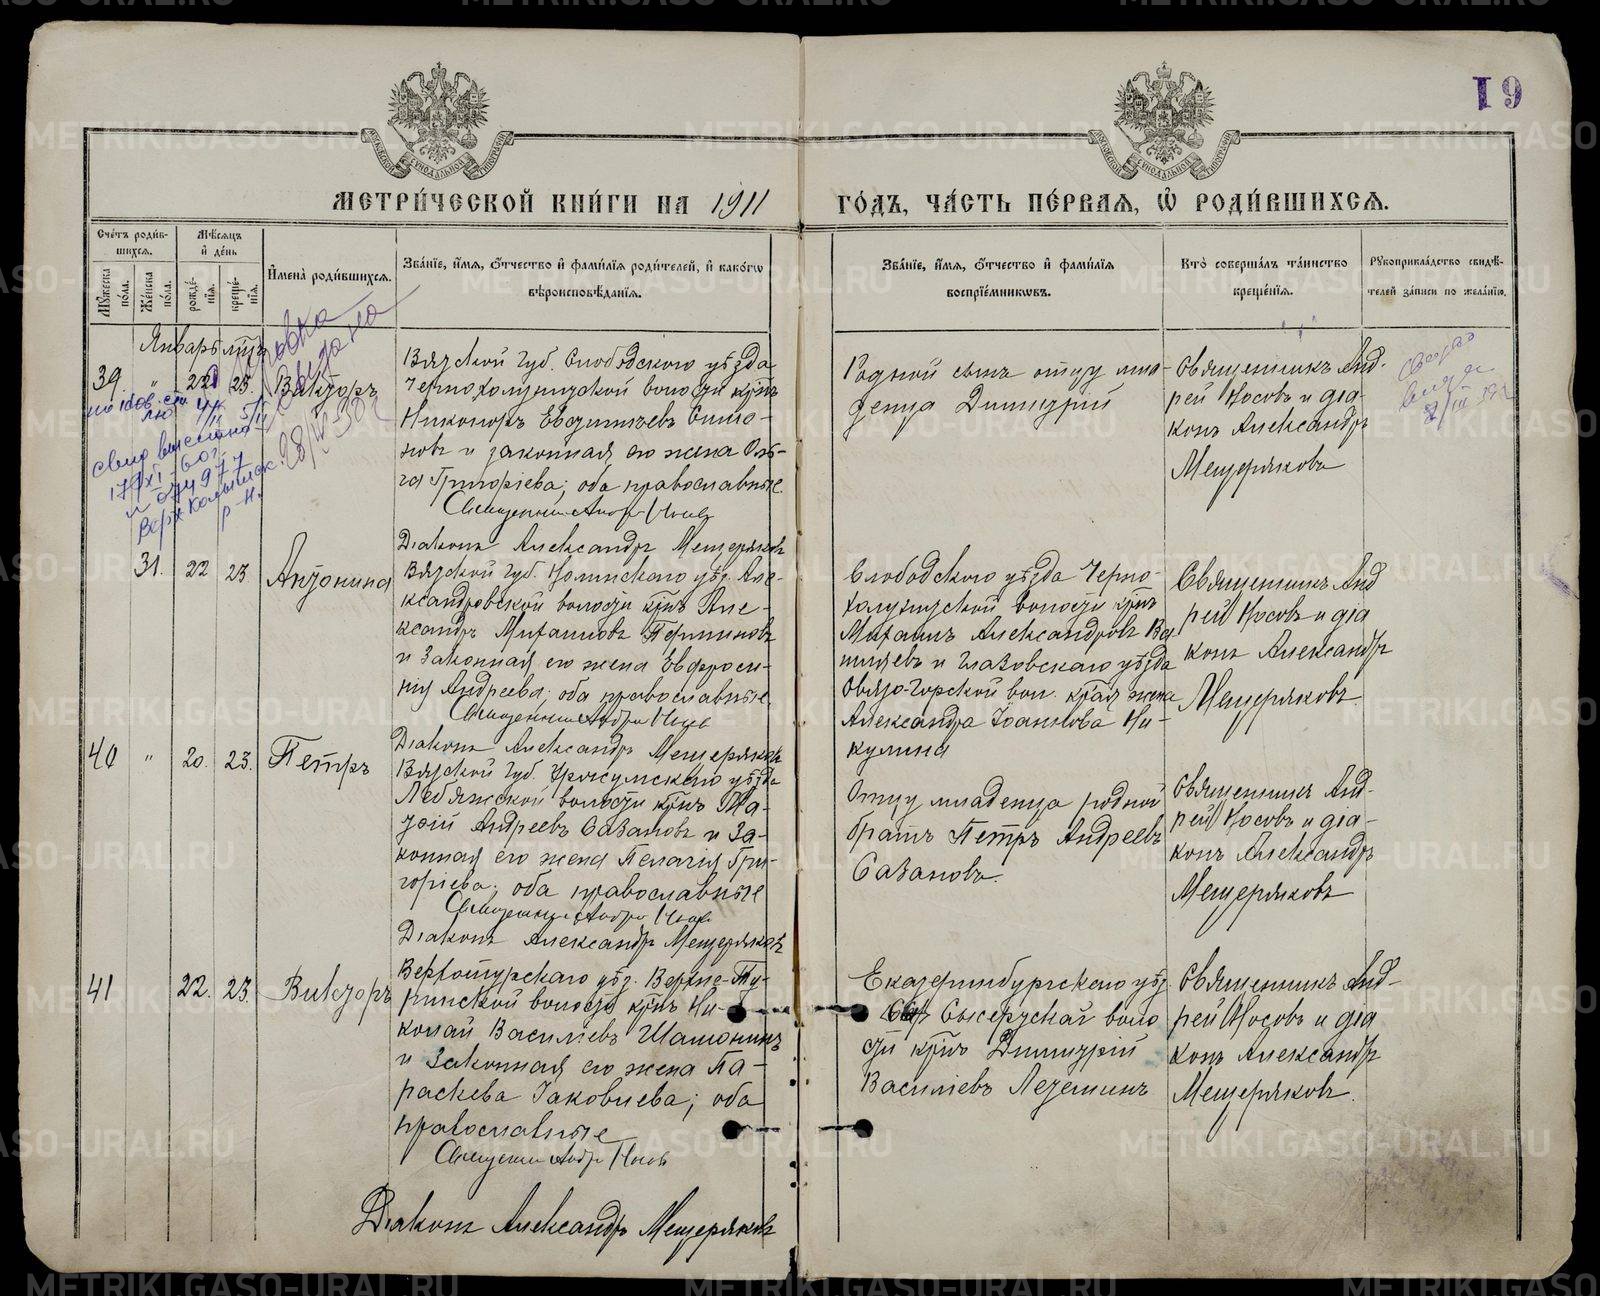 19
МЕТРИ́ЧЕСКОЙ КНИ́ГИ НА 1911 ГО́ДЪ, ЧА́СТЬ ПЕ́РВАЯ, Ѡ҆ РОДИ́ВШИХСЯ.
Сче́тъ роди́в-
шихся.
Мѣ́сяцъ
и҆ де́нь
Му́жеска по́ла.
Же́нска по́ла.
рожде́-
нїя.
креще́-
нїя.
И҆мена̀ роди́вшихся.
Зва́нїе, и҆́мя, ѻ҆́тчество и҆ фами́лїя роди́телей, и҆ како́гѡ
вѣроисповѣ́данїя.
Зва́нїе, и҆́мя, ѻ҆́тчество и҆ фами́лїя
воспрїе́мникѡвъ.
Кто̀ соверша́лъ та́инство
креще́нїя.
Рꙋкоприкла́дство свидѣ́-
телей за́писи по жела́нїю.
Январь
39. " 22 23. Викторъ
Вятской губ. Слободского уѣзда
Чернохолуницкой волости кр̃нъ
Никаноръ Евдокимовъ
и законная его жена Оль-
га Григоріева; оба православные.
Священникъ Андрей Носовъ
Діаконъ Александръ Мещеряковъ
Родной сынъ отцу мла-
денца Димитрій
Священникъ Анд-
рей Носовъ и діа-
конъ Александръ
Мещеряковъ
31. 22 23 Антонина
Вятской губ. Нолинскаго уѣз. Але-
ксандровской волости кр̃нъ Але-
ксандръ Михаиловъ Перминовъ
и законная его жена Евфроси-
нія Андреева; оба православные.
Священникъ Андрей Носовъ
Діаконъ Александръ Мещеряковъ
Слободского уѣзда Черно-
холуницкой волости кр̃нъ
Михаилъ Александровъ
и Глазовскаго уѣзда
Святогорской вол. кр̃ая жена
Александра Іоаннова Ни-
кулина
Священникъ Анд
рей Носовъ и діа
конъ Александръ
Мещеряковъ.
40 " 20. 23. Петръ
Вятской губ. Уржумскаго уѣзда
Лебяжской волости кр̃нъ
Андреевъ Сазановъ и за-
конная его жена Пелагія Гри-
горіева; оба православные
Священникъ Андрей Носовъ
Діаконъ Александръ Мещеряковъ
Отцу младенца родной
братъ Петръ Андреевъ
Сазановъ.
Священникъ Анд-
рей Носовъ и діа-
конъ Александръ
Мещеряковъ
41 22. 23. Викторъ
Верхотурскаго уѣз. Верхне-Ту-
ринской волости кр̃нъ Ни-
колай Василіевъ Шамонинъ
и законная его жена Па-
раскева Іаковлева; оба
православные
Священникъ Андрей Носовъ
Діаконъ Александръ Мещеряковъ
Екатеринбургскаго уѣз.
Сысертской воло
сти кр̃нъ Димитрій
Василіевъ
Священникъ Анд-
рей Носовъ и діа
конъ Александръ
Мещеряковъ.